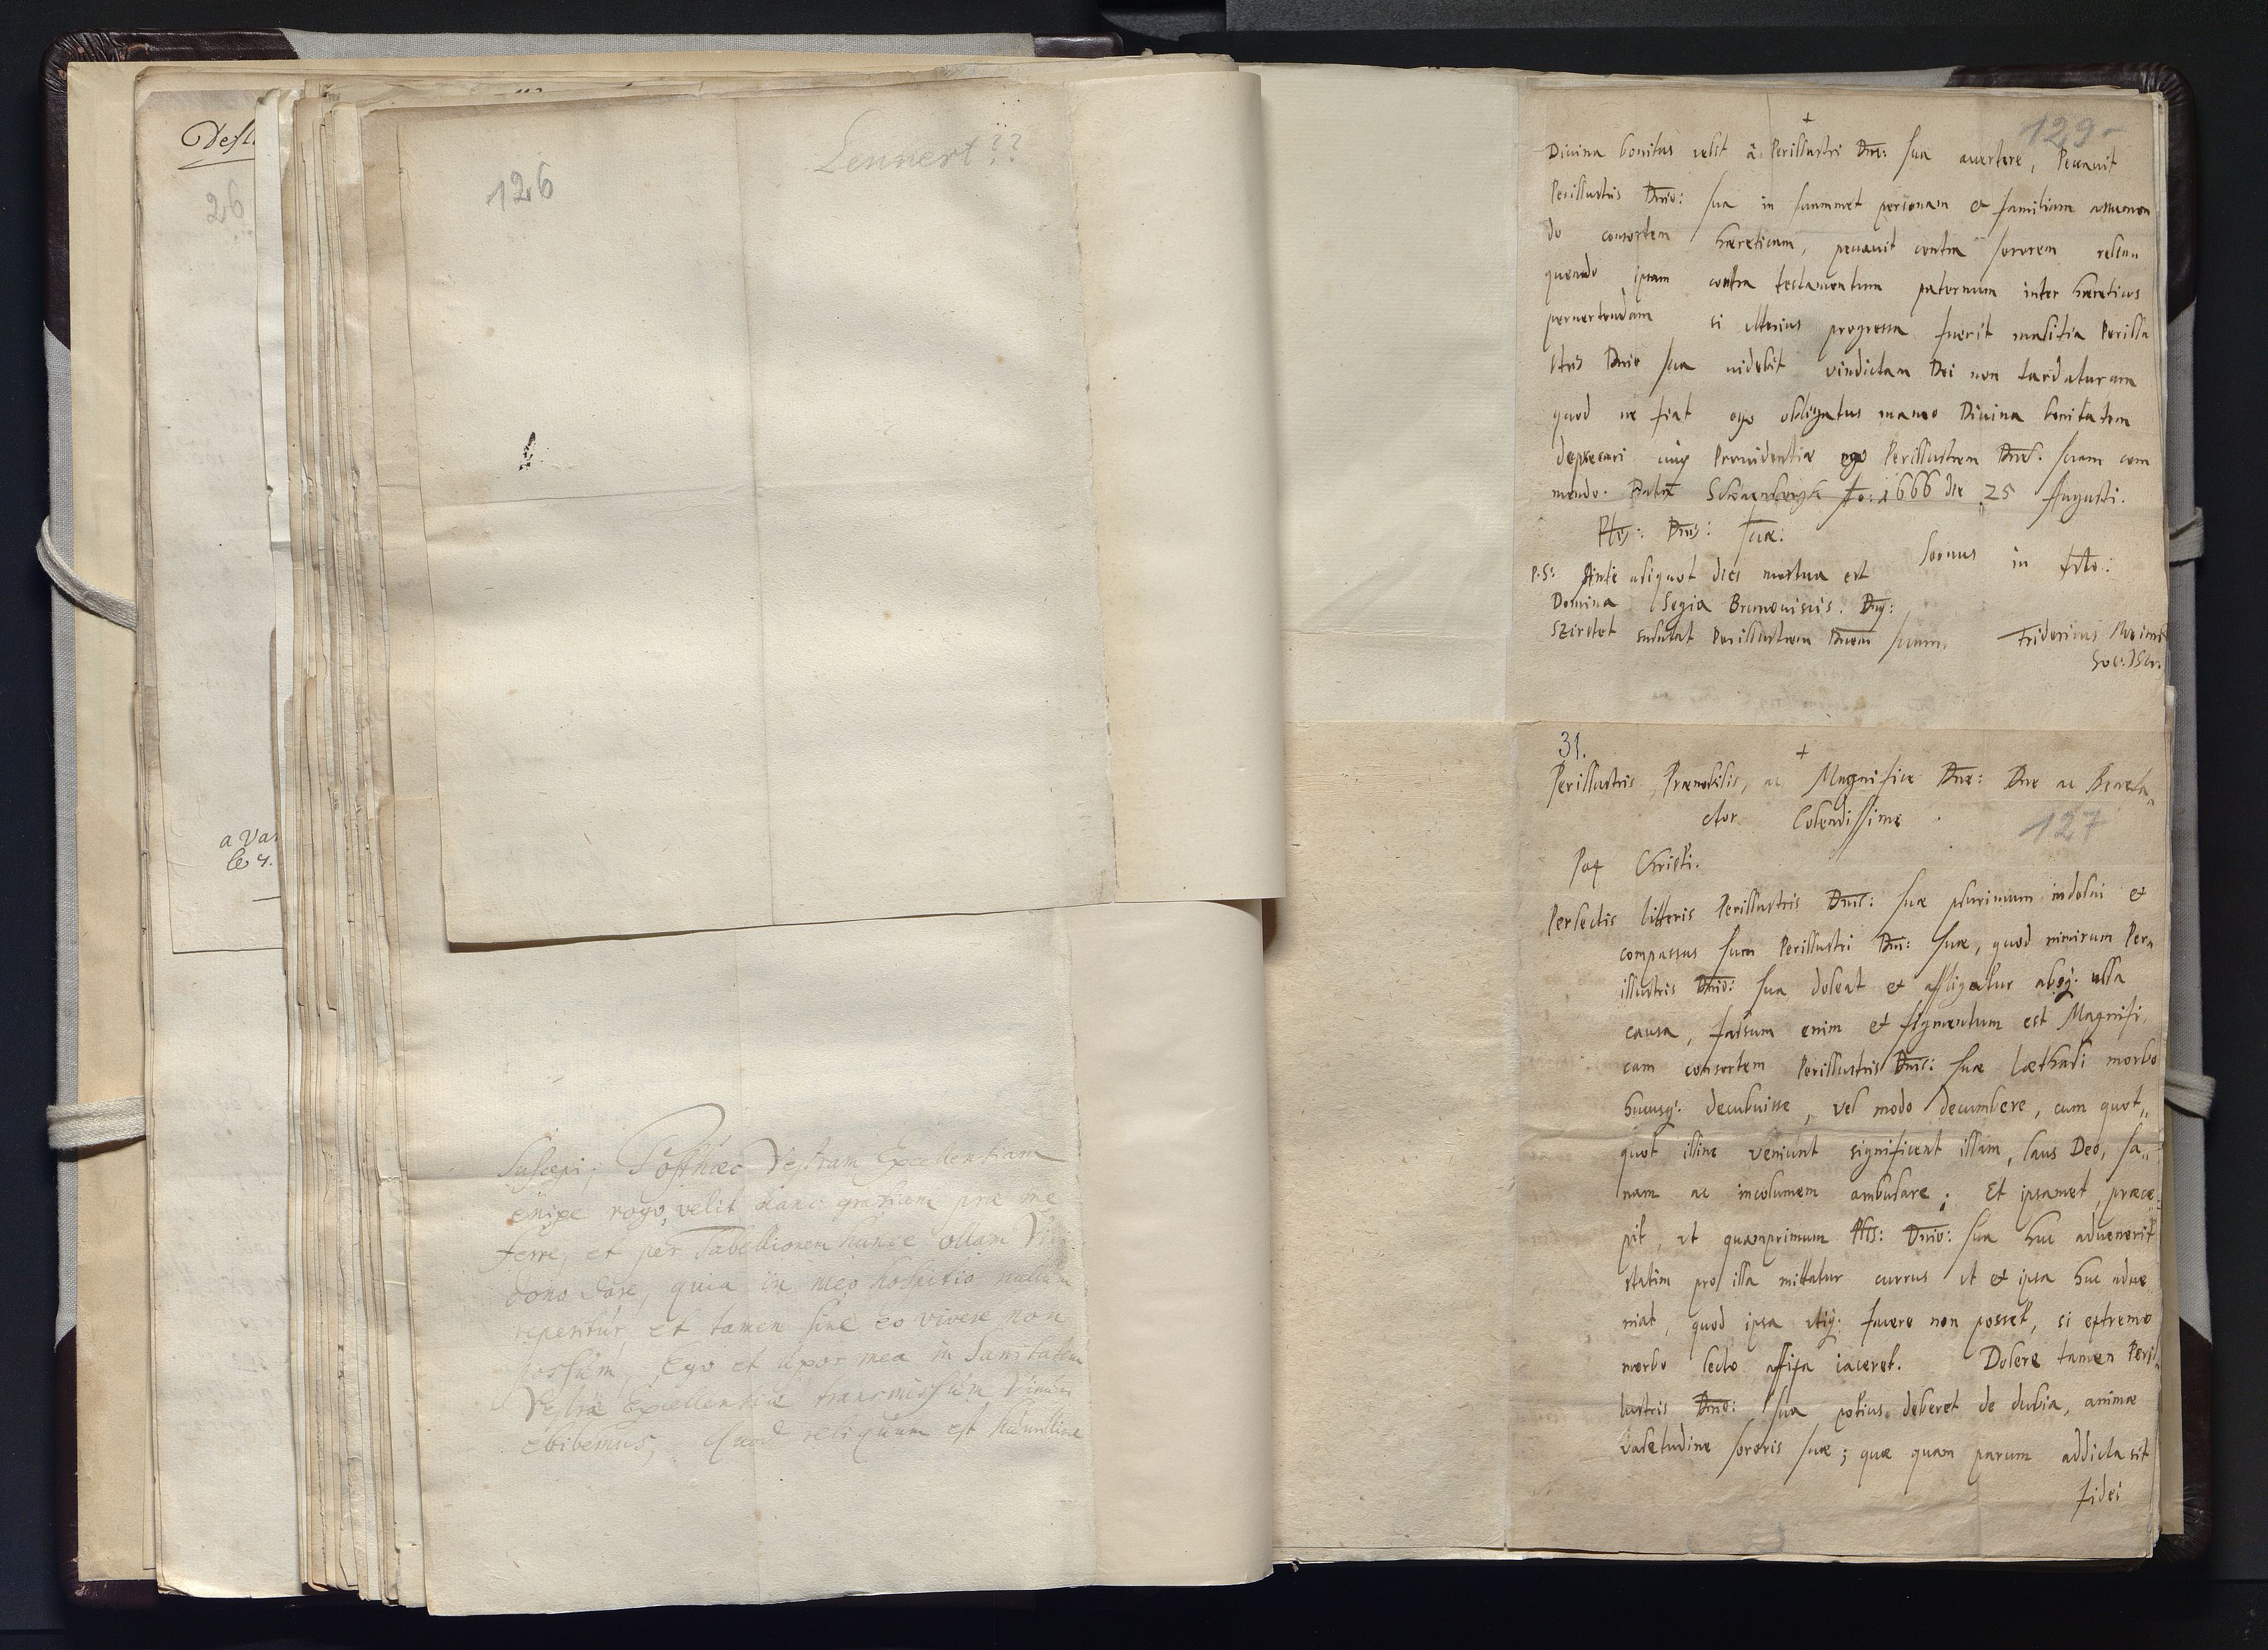 Desl
26
a Var
le 4.
126
Lennert ??
Suscepi; Posthæc Vestram Excellentiam
enixe rogo, velit hanc gratiam præ me
ferre, et per Tabellionem hunce ollam Vini
dono dare, quia in meo hospitio nullum
reperitur, et tamen sine eo vivere non
possum, Ego et uxor mea in Sanitatem
Vestræ Excellentiæ transmissum Vinum
ebibemus, Quod reliquum est humillime
129
Diuina bonitas uelit à Perillustri Dne: sua auertere, Peccauit
Perillustris Dnio: sua in suammet personam et familiam assumen
do consortem hæreticam, peccauit contra sororem relin„
quendo ipsam contra testamentum paternum inter hæreticos
peruertendam si ulterius progressa fuerit malitia Perillu
stris Dnio sua uidebit vindictam Dei non tardaturam
quod ne fiat ego obligatus maneo Diuinã bonitatem
deprecari cuiq Prouidentiæ ego Perillustrem Dnẽ. suam com
mendo. Datæ 1666 die 25 Augusti.
Ptris: Dnis: suæ:
Seruus in Xto:
P.S: Ante aliquot dies mortua est
Domina
salutat Perillustrem Dnem suam.
Fridericus
Soc: JSu.
31.
Perillustris, Prænobilis, ac Magnifice Dne: Dne ac Benefa„
ctor Colendissime
127
Pax Christi.
Perlectis litteris Perillustris Dnis: suæ plurimum indolui et
compassus sum Perillustri Dni: suæ, quod nimirum Per„
illustris Dnio: sua doleat et affligatur absq: ulla
causa, falsum enim et figmentum est Magnifi„
cam consortem Perillustris Dnis: suæ læthali morbo
hucusq: decubuisse, vel modo decumbere, cum quot„
quot illinc veniunt significent illam, laus Deo, sa„
nam ac incolumem ambulare; Et ipsamet, præce„
pit, ut quamprimum Ptris: Dnio: sua huc aduenerit
statim pro illa mittatur currus ut et ipsa huc adue„
niat, quod ipsa utiq: facere non posset, si extremo
morbo lecto affixa iaceret. Dolere tamen Peril„
lustris Dnio: sua potius deberet de dubia, animæ
valetudine sororis suæ; quæ quam parum addicta sit
fidei